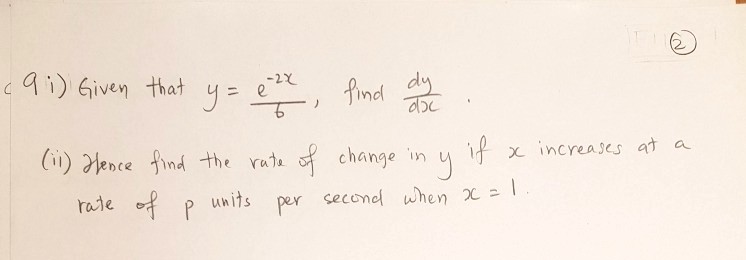 ②
9 i) Given that y = e^{-2x}/6, find dy/dx.
(ii) Hence find the rate of change in y if x increases at a
rate of p units per second when x = 1.